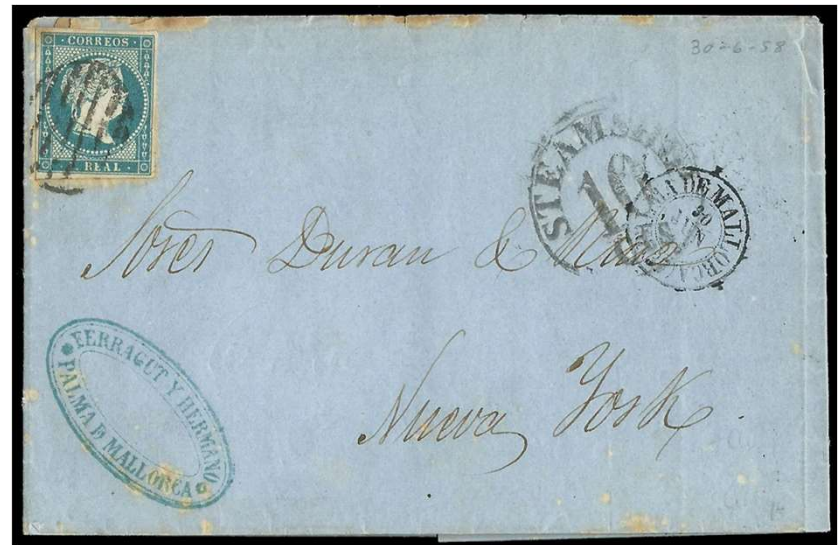 CORREOS
REAL
30-6-58
STEAMSHIP
10
PALMA DE MALLORCA
30
JUN
Sores Duran &
Nueva York
FERRAGUT Y HERMANO
PALMA DE MALLORCA